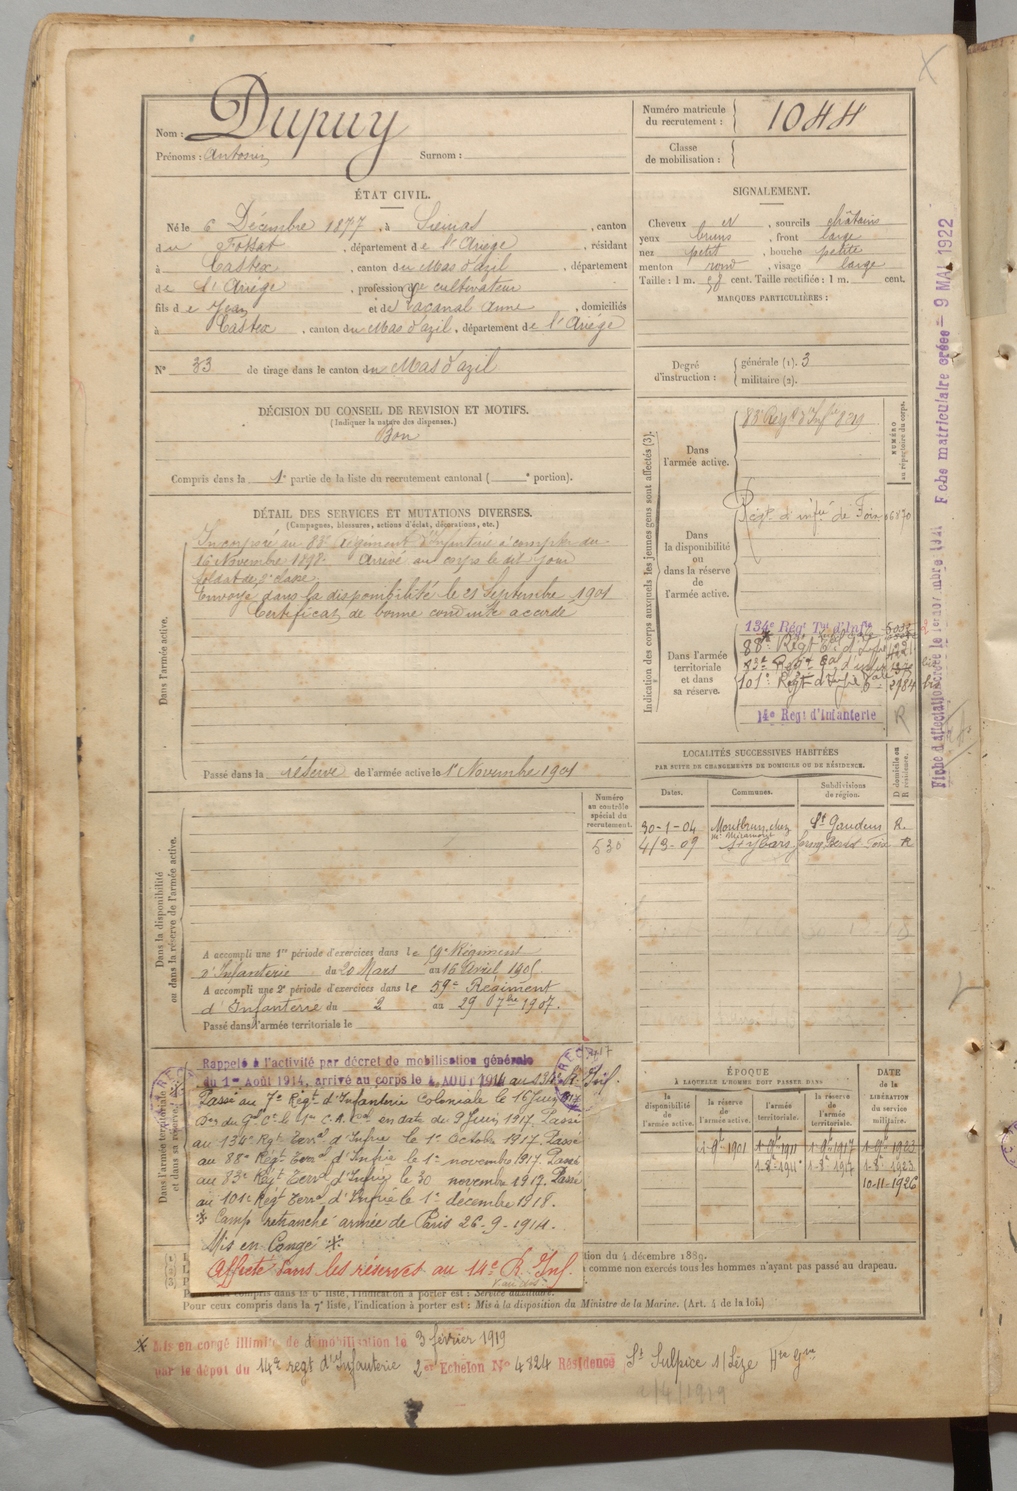 Nom : Dupuy
Prénoms : Antonin Surnom :
Numéro matricule du recrutement : 1044
Classe de mobilisation :
ÉTAT CIVIL.
Né le 6 Décembre 1877, à Sieuras, canton
du Fossat, département de l'Ariège, résidant
à Castex, canton du Mas d'azil, département
de l'Ariège, profession de cultivateur
fils de Jean et de Lacanal Anne, domiciliés
à Castex, canton du Mas d'azil, département de l'Ariège
N° 33 de tirage dans le canton du Mas d'azil
SIGNALEMENT.
Cheveux et, sourcils châtains
yeux bruns, front large
nez petit, bouche petite
menton rond, visage large
Taille : 1 m. 58 cent. Taille rectifiée : 1 m. cent.
MARQUES PARTICULIÈRES :
Degré d'instruction : générale (1). 3
militaire (2).
DÉCISION DU CONSEIL DE REVISION ET MOTIFS.
(Indiquer la nature des dispenses.)
Bon
Compris dans la 1e partie de la liste du recrutement cantonal ( e portion).
DÉTAIL DES SERVICES ET MUTATIONS DIVERSES.
(Campagnes, blessures, actions d'éclat, décorations, etc.)
Dans l'armée active.
Incorporé au 88e régiment d'Infanterie à compter du
16 Novembre 1898. Arrivé au corps le dit jour
Soldat de 2e classe
Envoyé dans la disponibilité le 21 Septembre 1901
Certificat de bonne conduite accordé
Passé dans la réserve de l'armée active le 1er Novembre 1901
Indication des corps auxquels les jeunes gens sont affectés (3).
NUMÉRO au répertoire du corps.
Dans l'armée active.
88e Régt d'Infie
Dans la disponibilité ou dans la réserve de l'armée active.
Régt d'infie de Foix 6870
Dans l'armée territoriale et dans sa réserve.
134e Régt Tal d'Infie
88e Régt Tal d'Infie
83e Régt Tal d'infie
101e Régt 2984 bis
14e Régt d'Infanterie R
LOCALITÉS SUCCESSIVES HABITÉES
PAR SUITE DE CHANGEMENTS DE DOMICILE OU DE RÉSIDENCE.
Dates. Communes. Subdivisions de région. D domicile ou R résidence.
30-1-04 Montbrun, chez Mr Miramont St Gaudens R.
4/3-09 St Ybars Foix R
Dans la disponibilité ou dans la réserve de l'armée active.
Numéro au contrôle spécial du recrutement.
530
A accompli une 1re période d'exercices dans le 59e Régiment
d'Infanterie du 20 Mars au 16 Avril 1905.
A accompli une 2e période d'exercices dans le 59e Régiment
d'Infanterie du 2 au 29 7bre 1907.
Passé dans l'armée territoriale le
Dans l'armée territoriale et dans sa réserve.
Rappelé à l'activité par décret de mobilisation générale
du 1er Août 1914, arrivé au corps le 4 AOUT 1914 au 134e R. Inf.
Passé au 7e Régt d'Infanterie Coloniale le 16 Juin 1917
du Gal Ct le 1er C.A. Cal en date de 9 Juin 1917. Passé
au 134e Rgt Terral d'Infrie le 1er Octobre 1917. Passé
au 88e Régt Terral d'Infrie le 1er novembre 1917. Passé
au 83e Régt Terral d'Infrie le 30 novembre 1917. Passé
au 101e Régt Terral d'Infrie le 1er décembre 1918.
* Camp retranché armée de Paris 26-9-1914.
Mis en Congé *
Affecté dans les réserves au 14e R. Inf.
ÉPOQUE
À LAQUELLE L'HOMME DOIT PASSER DANS
la disponibilité de l'armée active. la réserve de l'armée active. l'armée territoriale. la réserve de l'armée territoriale. DATE de la LIBÉRATION du service militaire.
1-9e 1901 1-9e 1911 1-9e 1917 1-9e 1923
1-8e 1911 1-8e 1917 1-8e 1923
10-11-1926
tion du 4 décembre 1889.
comme non exercés tous les hommes n'ayant pas passé au drapeau.
compris dans la 6e liste, l'indication à porter est : Service auxiliaire.
Pour ceux compris dans la 7e liste, l'indication à porter est : Mis à la disposition du Ministre de la Marine. (Art. 4 de la loi.)
* Mis en congé illimité de démobilisation le 3 février 1919
par le dépot du 14e regt d'Infanterie 2e Echelon N° 4824 Résidence St Sulpice s/ Lèze Hte Gne
/4/1919
Fiche matriculaire créée – 9 MAI 1922